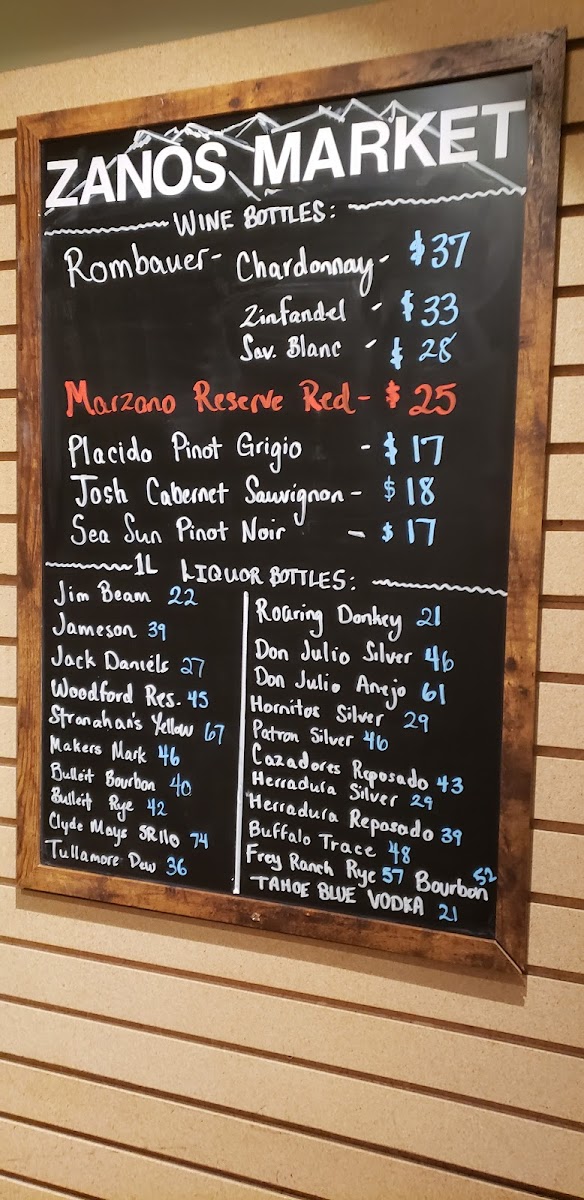 ZANOS MARKET
WINE BOTTLES:
Rombauer- Chardonnay- $37
Zinfandel - $33
Sav. Blanc - $28
Marzano Reserve Red- $25
Placido Pinot Grigio - $17
Josh Cabernet Sauvignon- $18
Sea Sun Pinot Noir - $17
1L LIQUOR BOTTLES:
Jim Beam 22
Jameson 39
Jack Daniels 27
Woodford Res. 45
Stranahan's Yellow 67
Makers Mark 46
Bulleit Bourbon 40
Bulleit Rye 42
Clyde Mays SR110 74
Tullamore Dew 36
Roaring Donkey 21
Don Julio Silver 46
Don Julio Anejo 61
Hornitos Silver 29
Patron Silver 46
Cazadores Reposado 43
Herradura Silver 29
Herradura Reposado 39
Buffalo Trace 48
Frey Ranch Rye 57 Bourbon 52
TAHOE BLUE VODKA 21